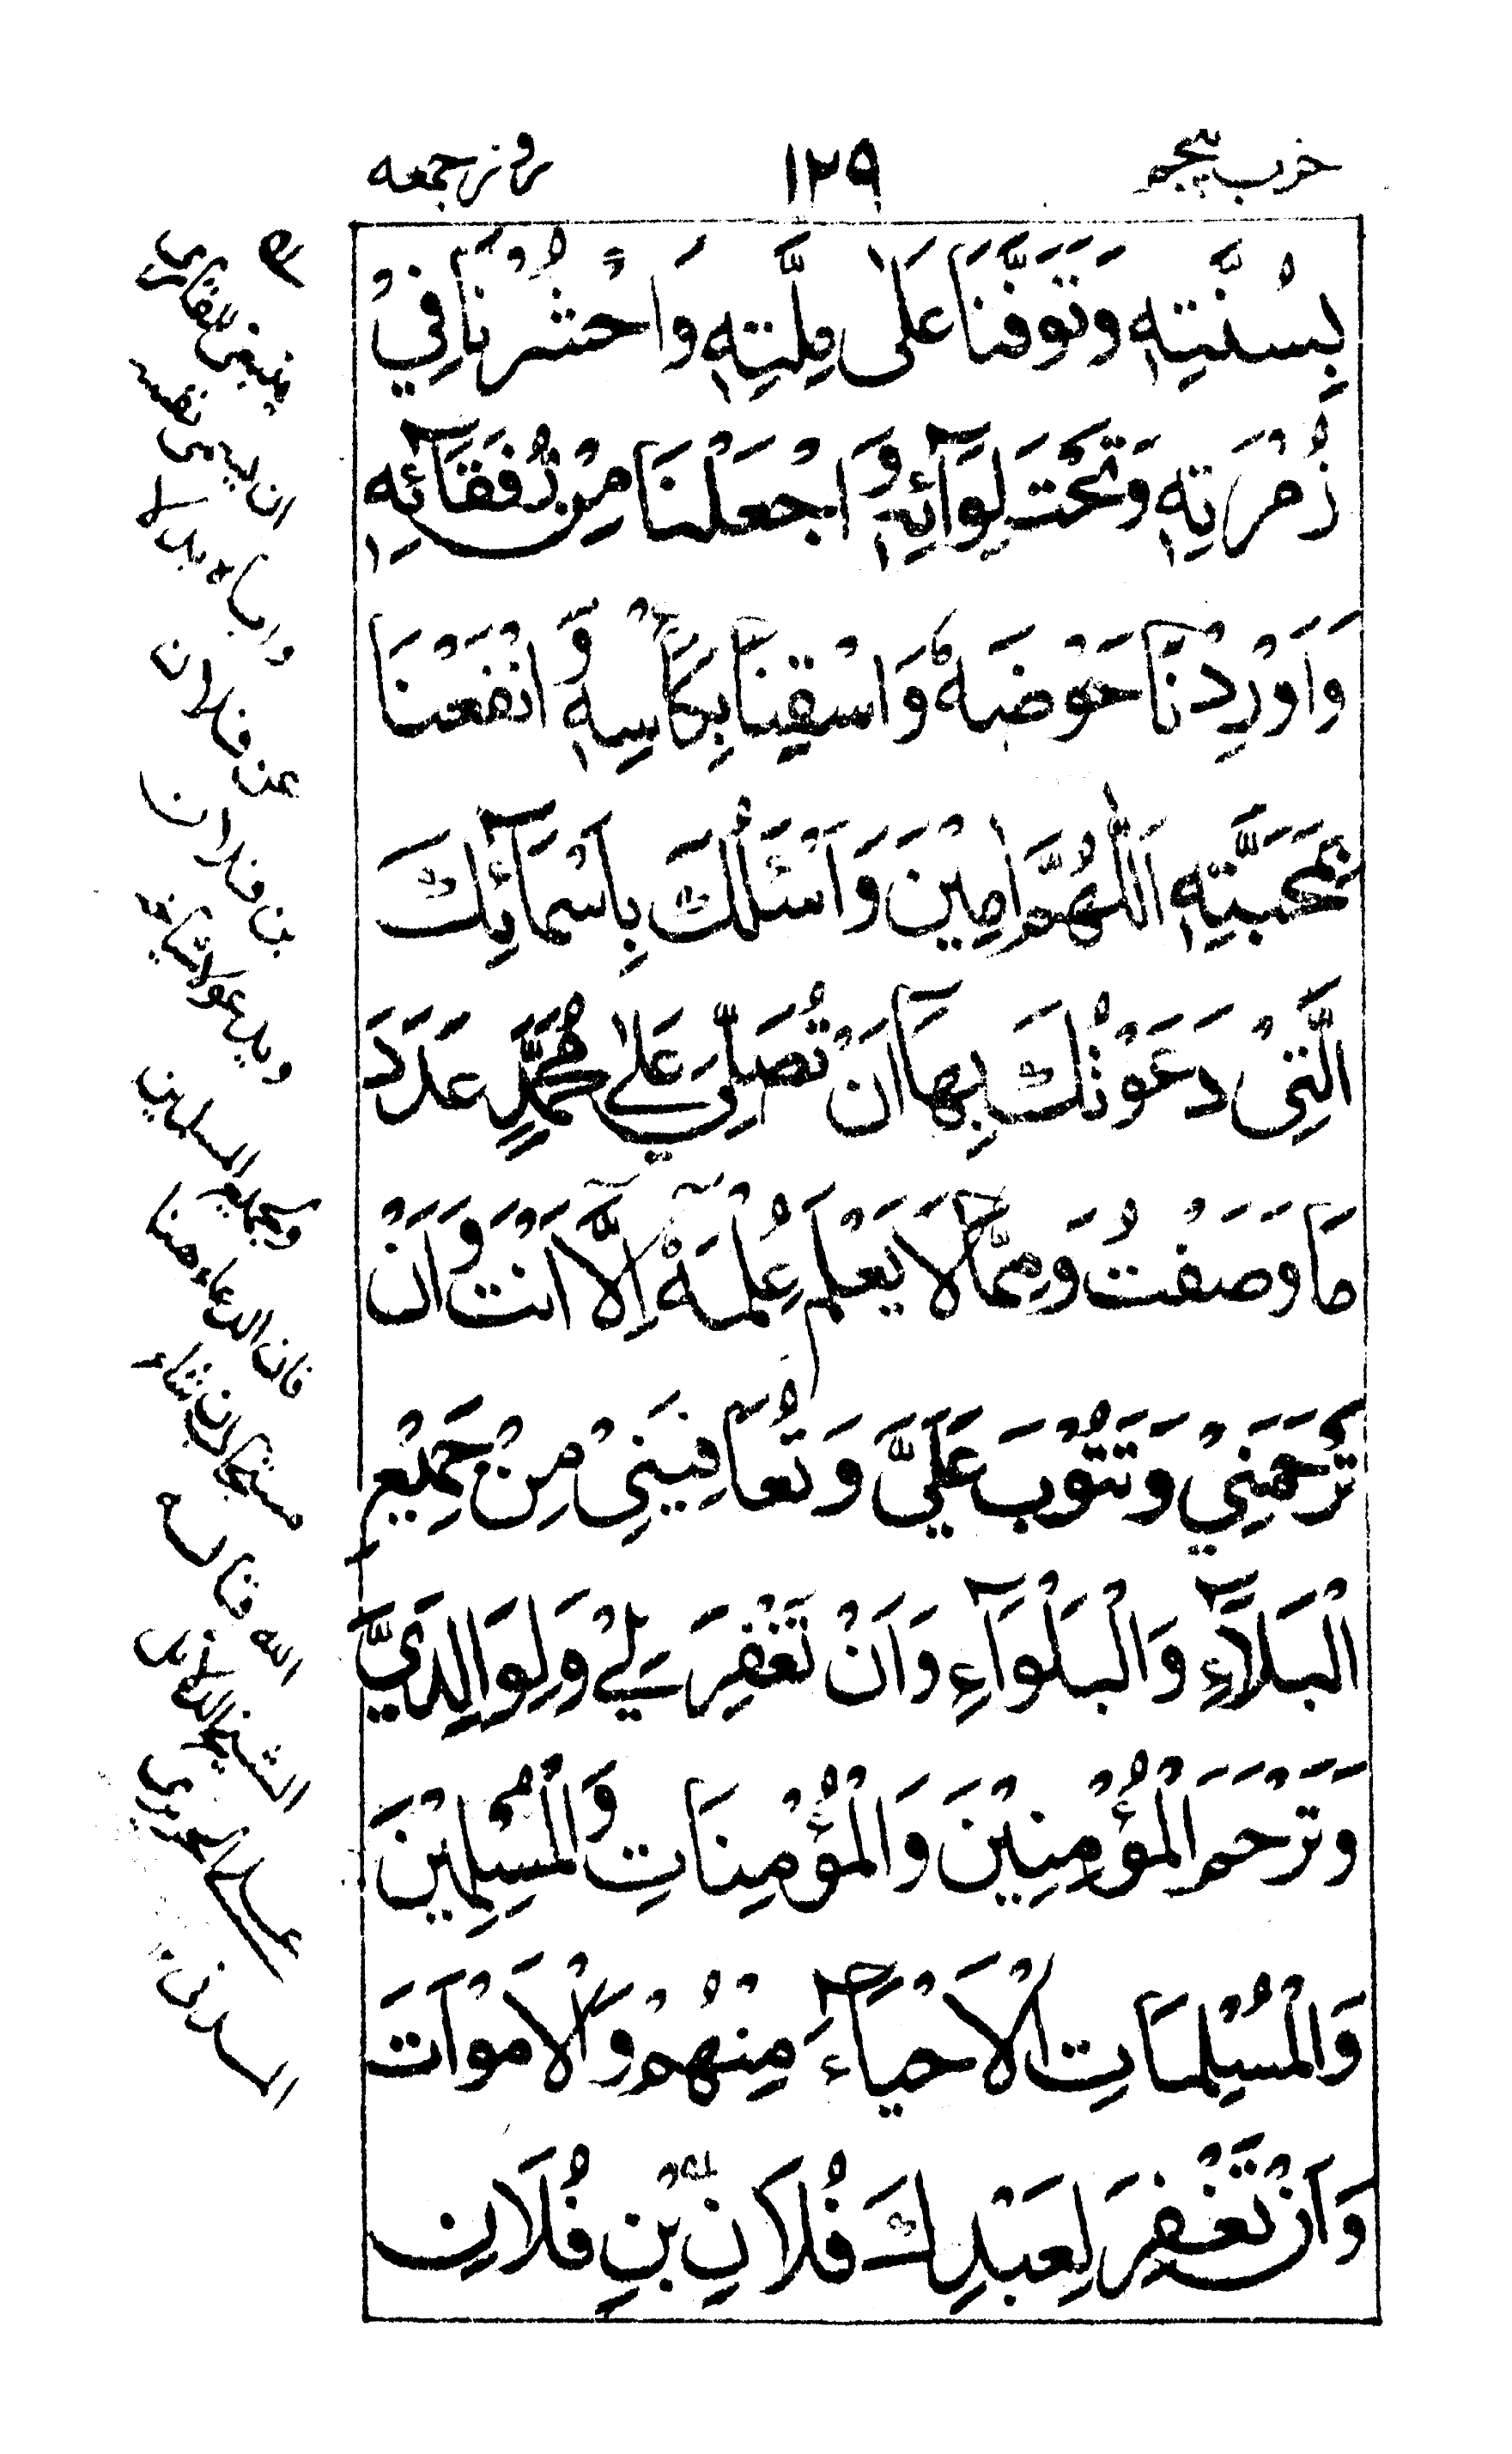 حزب پنجم
١٢٩
روز جمعه
بِسُنَّتِهٖ وَتَوَفَّنَا عَلٰى مِلَّتِهٖ وَاحْشُرْنَا فِيْ
زُمْرَتِهٖ وَتَحْتَ لِوَآئِهٖ وَاجْعَلْنَا مِنْ رُفَقَآئِهٖ
وَاَوْرِدْنَا حَوْضَهٗ وَاسْقِنَا بِكَاْسِهٖ وَانْفَعْنَا
بِمَحَبَّتِهٖ اَللّٰهُمَّ اٰمِيْنَ وَاَسْئَلُكَ بِاَسْمَآئِكَ
الَّتِيْ دَعَوْتُكَ بِهَآ اَنْ تُصَلِّيَ عَلٰى مُحَمَّدٍ عَدَدَ
مَا وَصَفْتُ وَمِمَّا لَا يَعْلَمُ عِلْمَهٗٓ اِلَّآ اَنْتَ وَاَنْ
تَرْحَمَنِيْ وَتَتُوْبَ عَلَيَّ وَتُعَافِيَنِيْ مِنْ جَمِيْعِ
الْبَلَآءِ وَالْبَلْوَآءِ وَاَنْ تَغْفِرَ لِيْ وَلِوَالِدَيَّ
وَتَرْحَمَ الْمُؤْمِنِيْنَ وَالْمُؤْمِنَاتِ وَالْمُسْلِمِيْنَ
وَالْمُسْلِمَاتِ الْاَحْيَآءَ مِنْهُمْ وَالْاَمْوَاتَ
وَاَنْ تَغْفِرَ لِعَبْدِكَ فُلَانِ بْنِ فُلَانٍ
ينبغى للقارى
ان يسمى نفسه
واباه بدلا
عن فلان
بن فلان
ويدعو
المسلمين
فان الدعاء هنا
مستجاب ان شاء
الله قاله